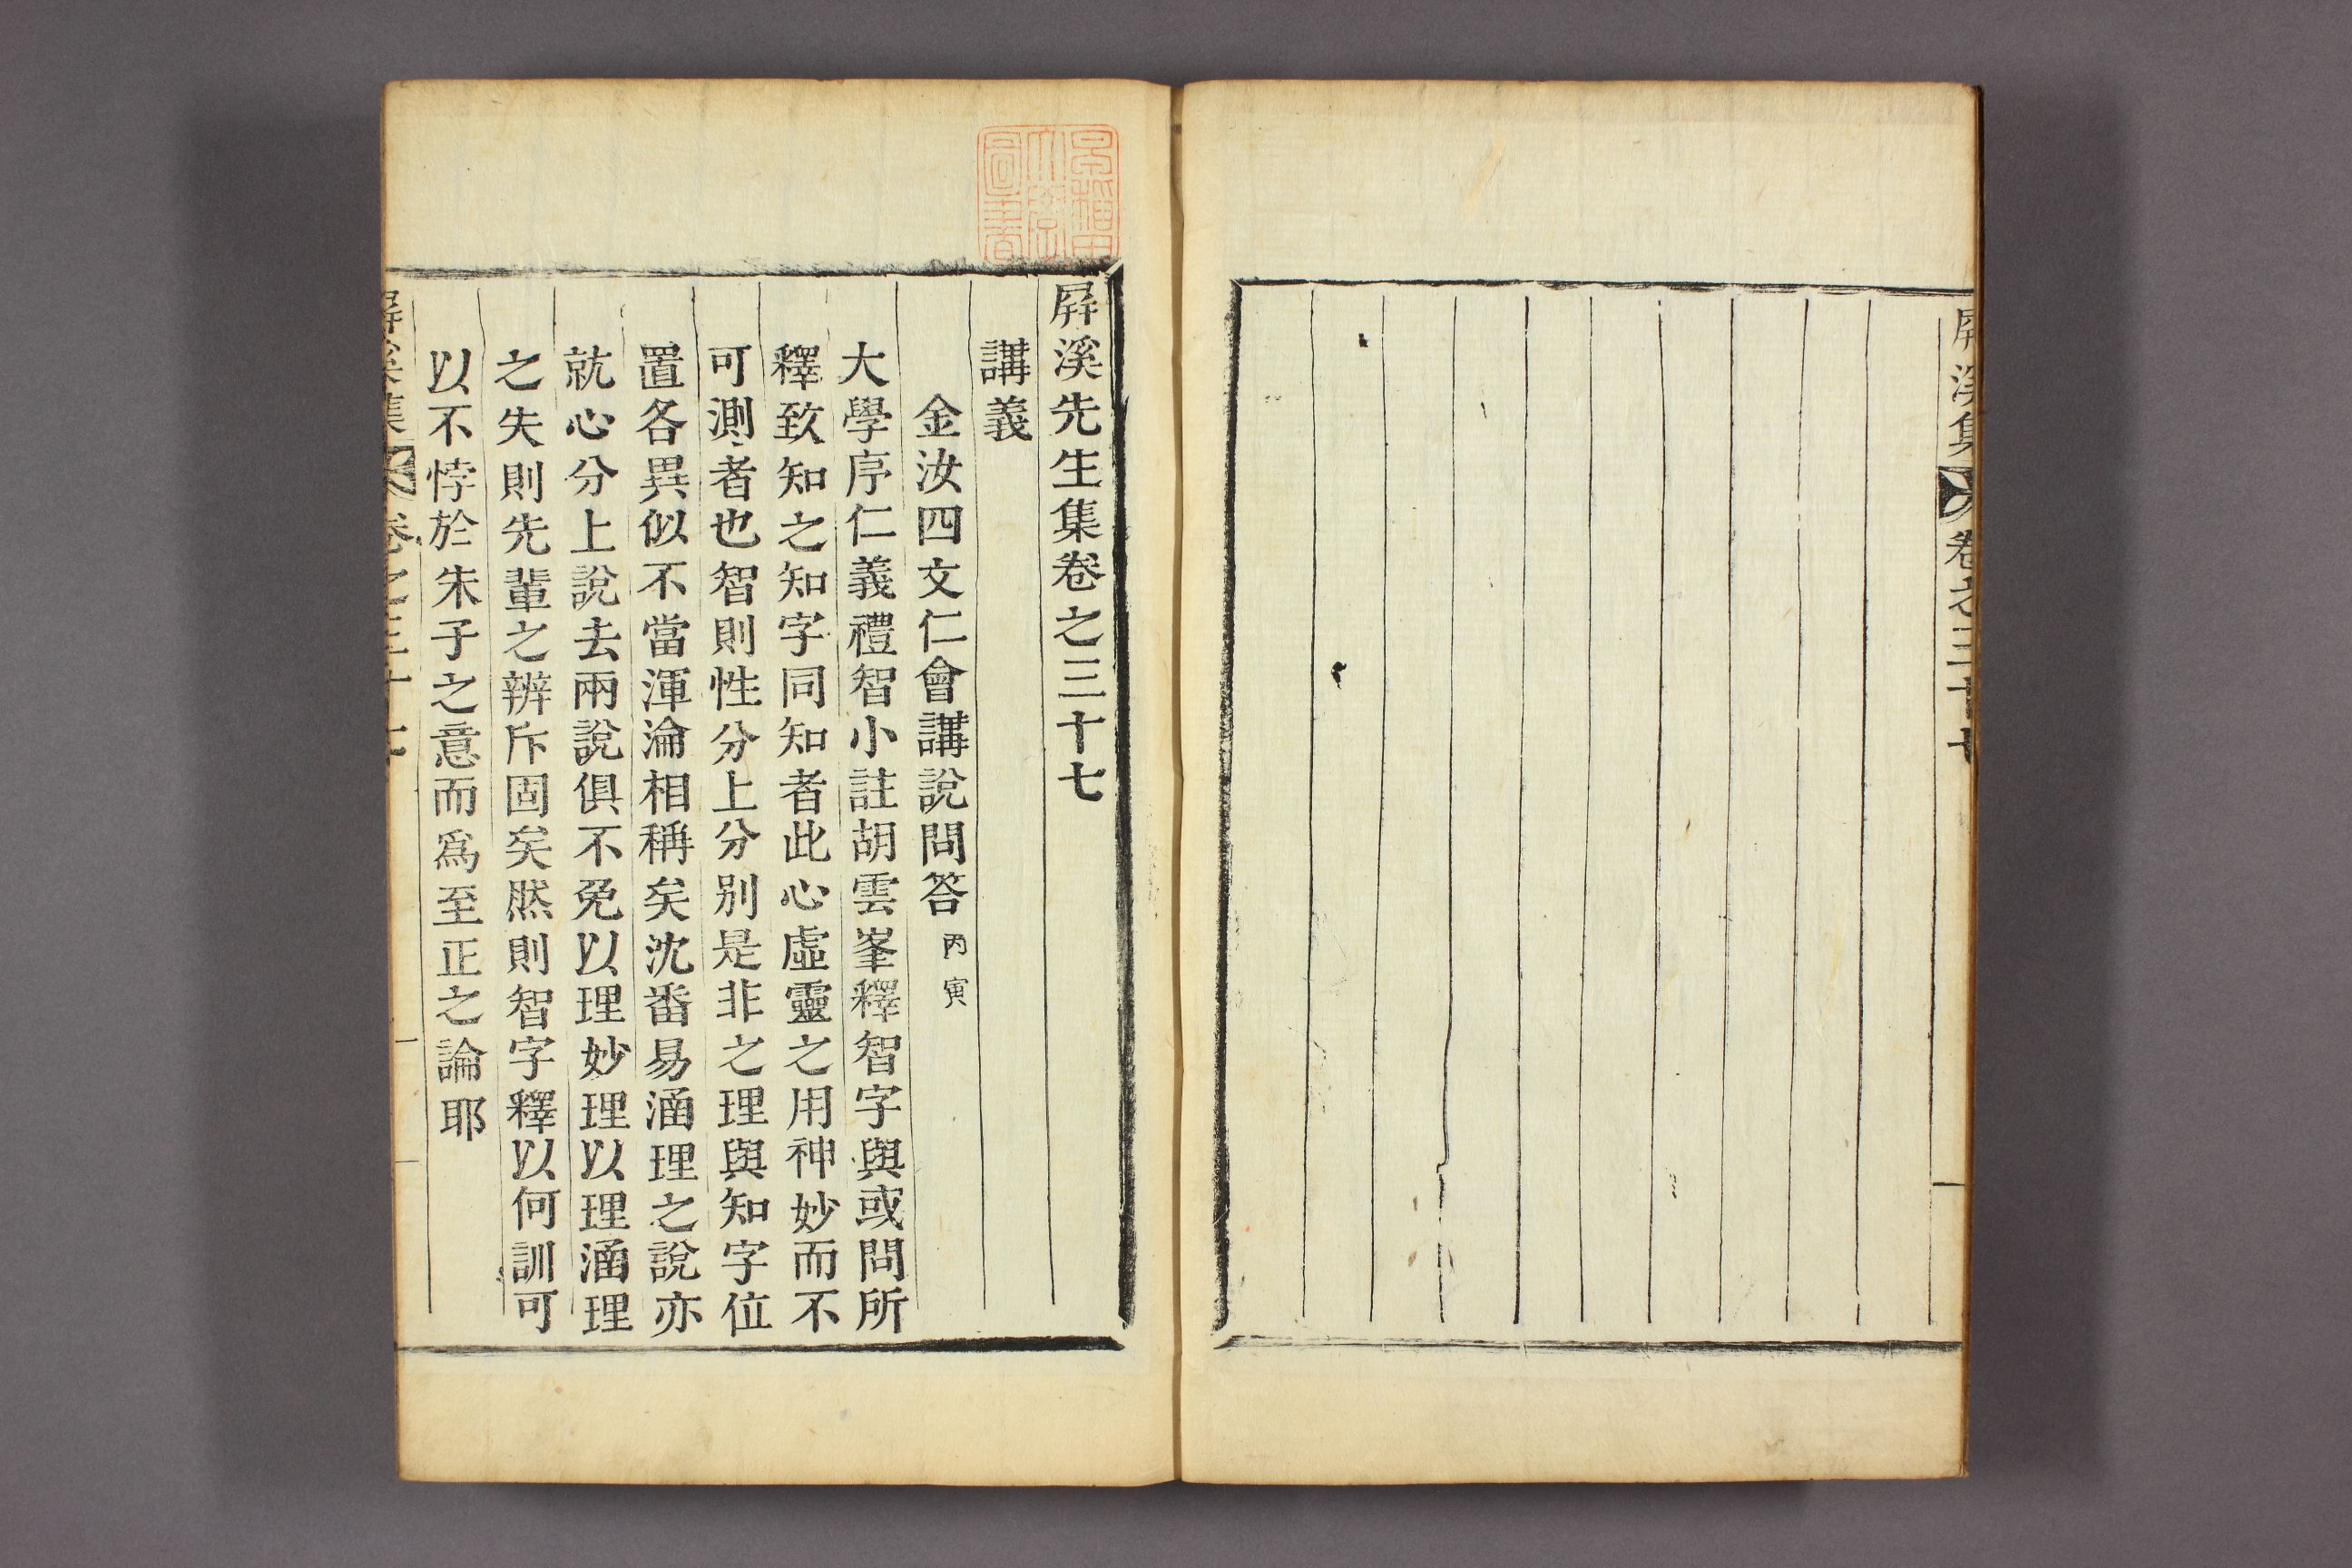 屛溪集 卷之三十七
屛溪先生集卷之三十七
講義
金汝四文仁會講說問答 丙寅
大學序仁義禮智小註胡雲峯釋智字與或問所
釋致知之知字同知者此心虛靈之用神妙而不
可測者也智則性分上分别是非之理與知字位
置各異似不當渾淪相稱矣沈番易涵理之說亦
就心分上說去兩說俱不免以理妙理以理涵理
之失則先輩之辨斥固矣然則智字釋以何訓可
以不悖於朱子之意而爲至正之論耶
屛溪集 卷之三十七 一
早稻田大學圖書